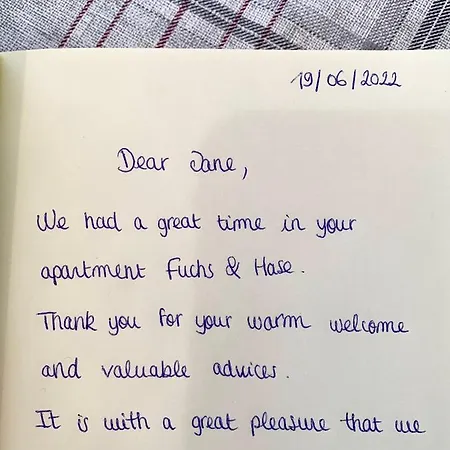 19/06/2022
Dear Jane,
We had a great time in your
apartment Fuchs & Hase.
Thank you for your warm welcome
and valuable advices.
It is with a great pleasure that we